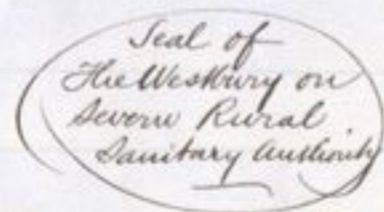 Seal of
The Westbury on
Severn Rural
Sanitary Authority